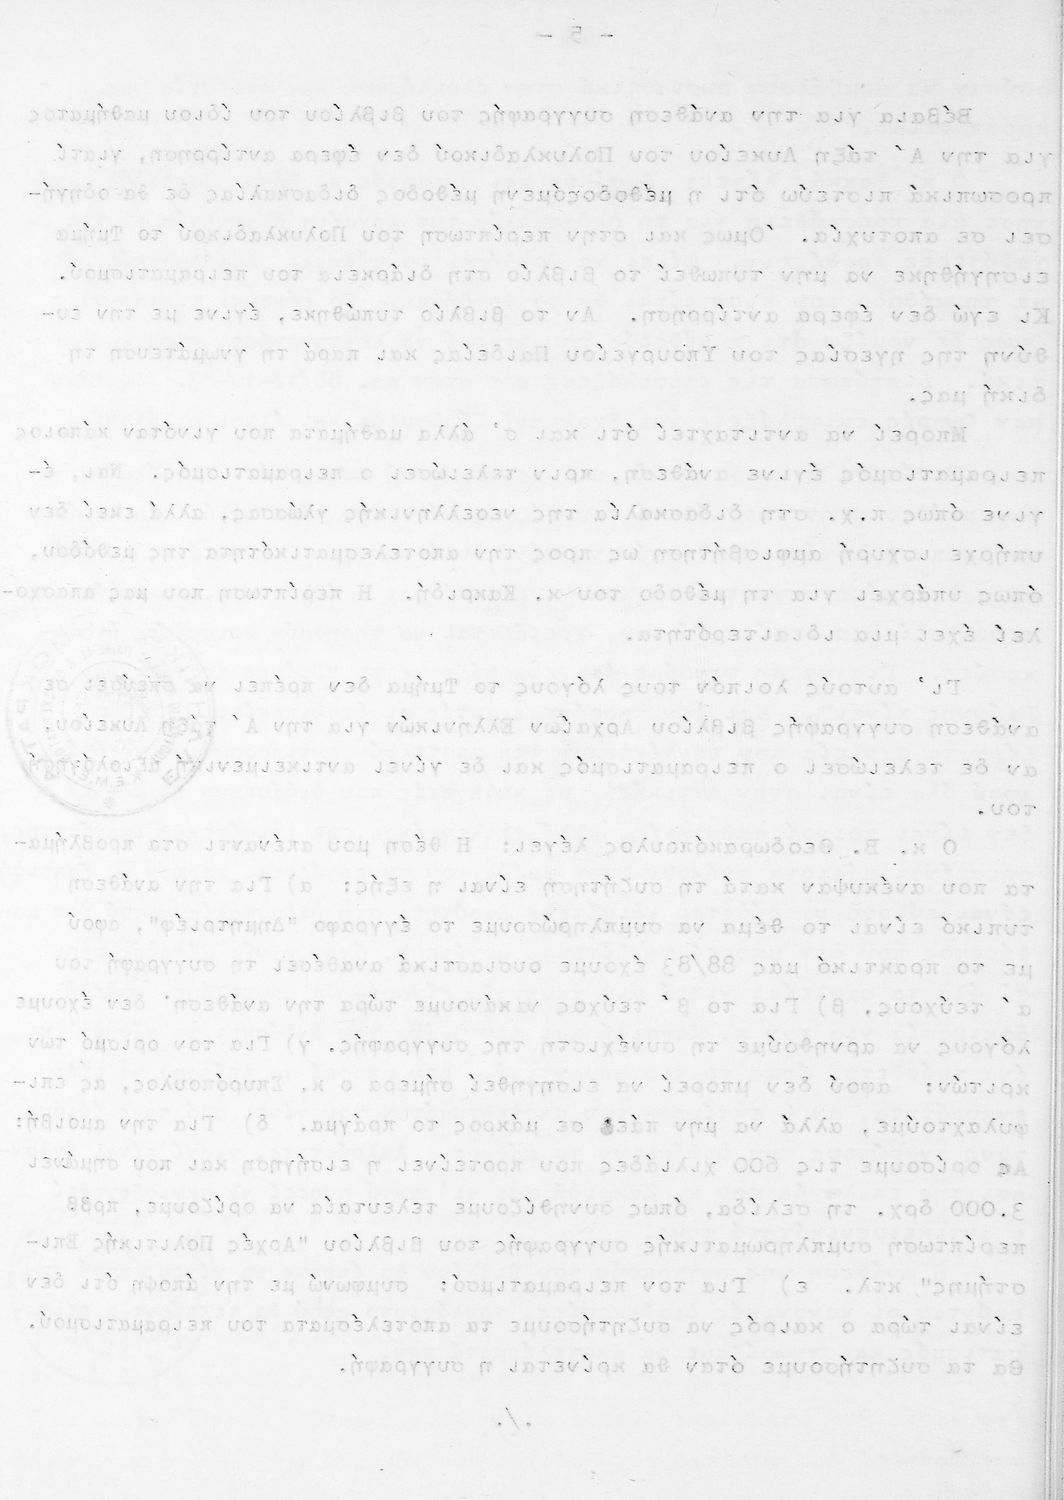 - 5 -
Βέβαια για την ανάθεση συγγραφής του βιβλίου του ίδιου μαθήματος
για την Α΄ τάξη Λυκείου του Πολυκλαδικού δεν έφερα αντίρρηση, γιατί
προσωπικά πιστεύω ότι η μεθοδευόμενη μέθοδος διδασκαλίας δε θα οδηγή-
σει σε αποτυχία. Όμως και στην περίπτωση του Πολυκλαδικού το Τμήμα
εισηγήθηκε να μην τυπωθεί το βιβλίο στη διάρκεια του πειραματισμού.
Κι εγώ δεν έφερα αντίρρηση. Αν το βιβλίο τυπώθηκε, έγινε με την ευ-
θύνη της ηγεσίας του Υπουργείου Παιδείας και παρά τη γνωμάτευση τη
δική μας.
Μπορεί να αντιταχτεί ότι και σ' άλλα μαθήματα που γινόταν κάποιος
πειραματισμός έγινε ανάθεση, πριν τελειώσει ο πειραματισμός. Ναι, έ-
γινε όπως π.χ. στη διδασκαλία της νεοελληνικής γλώσσας, αλλά εκεί δεν
υπήρχε ισχυρή αμφισβήτηση ως προς την αποτελεσματικότητα της μεθόδου,
όπως υπάρχει για τη μέθοδο του κ. Κακριδή. Η περίπτωση που μας απασχο-
λεί έχει μια ιδιαιτερότητα.
Γι' αυτούς λοιπόν τους λόγους το Τμήμα δεν πρέπει να σπεύσει σε
ανάθεση συγγραφής βιβλίου Αρχαίων Ελληνικών για την Α΄ τάξη Λυκείου,
αν δε τελειώσει ο πειραματισμός και δε γίνει αντικειμενική αξιολόγησή
του.
Ο κ. Β. Θεοδωρακόπουλος λέγει: Η θέση μου απέναντι στα προβλήμα-
τα που ανέκυψαν κατά τη συζήτηση είναι η εξής: α) Για την ανάθεση
τυπικό είναι το θέμα να συμπληρώσουμε το έγγραφο "Δημητριέφ", αφού
με το πρακτικό μας 88/83 έχουμε ουσιαστικά αναθέσει τη συγγραφή του
α΄ τεύχους, β) Για το β΄ τεύχος νακάνουμε τώρα την ανάθεση· δεν έχουμε
λόγους να αρνηθούμε τη συνέχιστη της συγγραφής. γ) Για τον ορισμό των
κριτών: αφού δεν μπορεί να εισηγηθεί σήμερα ο κ. Σπυρόπουλος, ας επι-
φυλαχτούμε, αλλά να μην πάει σε μάκρος το πράγμα. δ) Για την αμοιβή:
Ας ορίσουμε τις 600 χιλιάδες που προτείνει η εισήγηση και που σημαίνει
3.000 δρχ. τη σελίδα, όπως συνηθίζουμε τελευταία να ορίζουμε, πρββ
περίπτωση συμπληρωματικής συγγραφής του βιβλίου "Αρχές Πολιτικής Επι-
στήμης" κτλ. ε) Για τον πειραματισμό: συμφωνώ με την άποψη ότι δεν
είναι τώρα ο καιρός να συζητήσουμε τα αποτελέσματα του πειραματισμού.
Θα τα συζητήσουμε όταν θα κρίνεται η συγγραφή.
./.